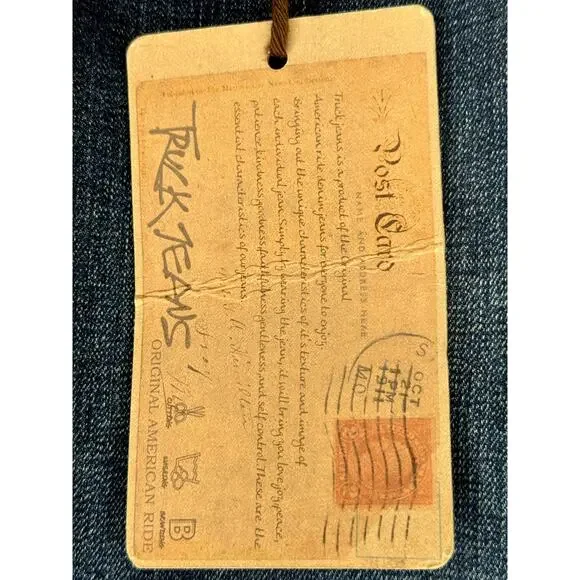 Post Card
NAME AND ADDRESS HERE
S OCT
21
1 PM
1911
MO.
Truck jeans is a product of the Original
American ride denim jeans for everyone to enjoy,
Bringing out the unique characteristics of it's texture and image of
each individual jean. Simply by wearing the jeans, it will bring you love, joy, peace,
patience, kindness, goodness, faithfulness, gentleness, and self control. These are the
essential characteristics of our jeans.
TRUCK JEANS
ORIGINAL AMERICAN RIDE
B